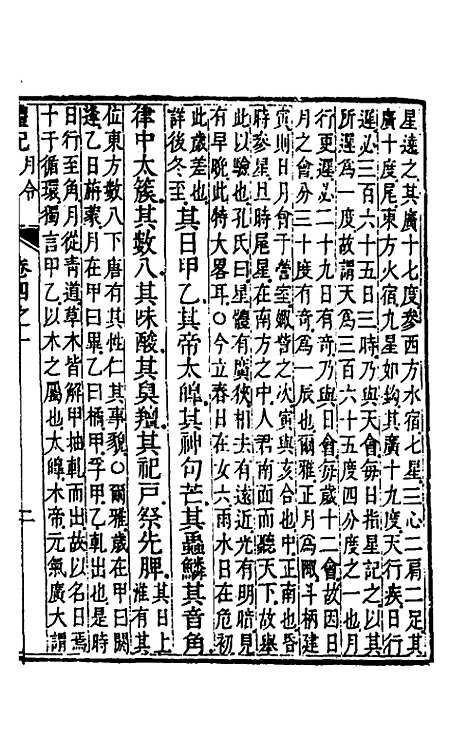 星遠之其廣十七度參西方水宿七星三心二肩二足其
廣十度尾東方火宿九星如鉤其廣十九度天行疾日行
遲必三百六十五日三時乃與天會每日指星記之以其
所遲為一度故謂天為三百六十五度四分度之一也月
行更遲必二十九日有奇乃與日會每歲十二會故因日
月之會分三十度有奇為一辰也爾雅正月為陬斗柄建
寅則日月會于營室娵訾之次寅與亥合也中正南也昏
時參星旦時尾星在南方之中人君南面而聽天下故舉
此以驗也孔氏曰星體有廣狹相去有遠近光有明暗見
有早晚此特大畧耳○今立春日在女六雨水日在危初
此歲差也
詳後冬至其日甲乙其帝太皥其神句芒其蟲鱗其音角
律中太簇其數八其味酸其臭羶其祀戶祭先脾其日上
淮有其
位東方數八下唐有其性仁其事貌○爾雅歲在甲曰閼
逢乙曰旃蒙月在甲曰畢乙曰橘甲孚甲乙軋出也是時
日行至角月從青道草木皆解甲抽軋而出故以名日焉
十干循環獨言甲乙以木之屬也太皥木帝元氣廣大謂
禮記月令
卷四之一
二